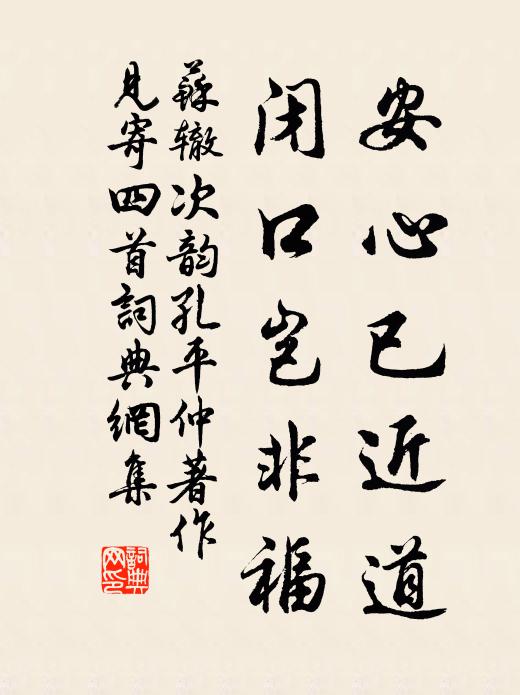 安心已近道
闭口岂非福
蘇辙次韵孔平仲著作
見寄四首詞典網集
詞典
网印